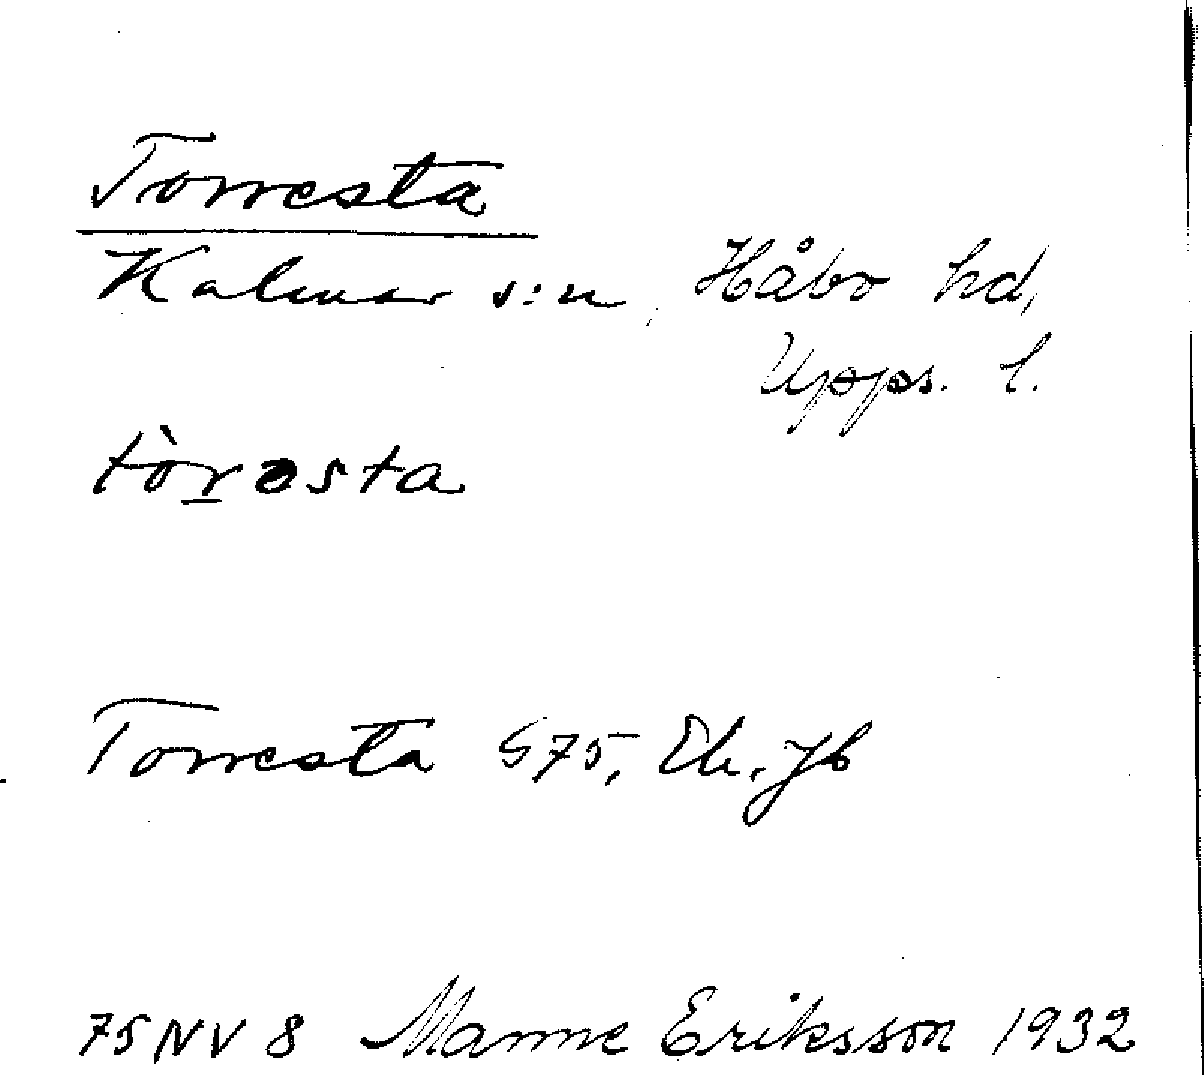 Torresta
Kalmar s:n, Håbo hd,
Upps. l.
tòrəsta
Torresta S75, Ek, Jb
75 NV 8 Manne Eriksson 1932